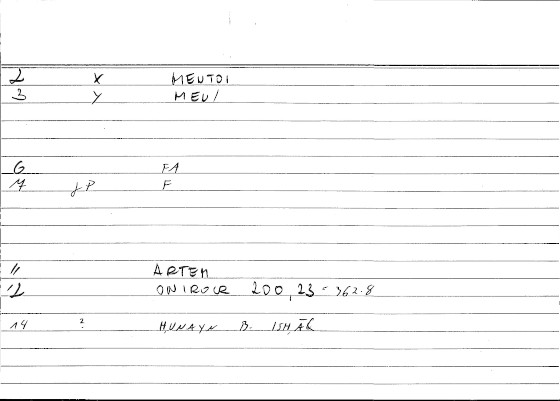 2 X MENTOI
3 Y MEN/
6 FA
7 γP F
11 ARTEM
12 ONIROCR 200, 23 = 362.8
14 ? ḤUNAYN B. ISḤĀḲ